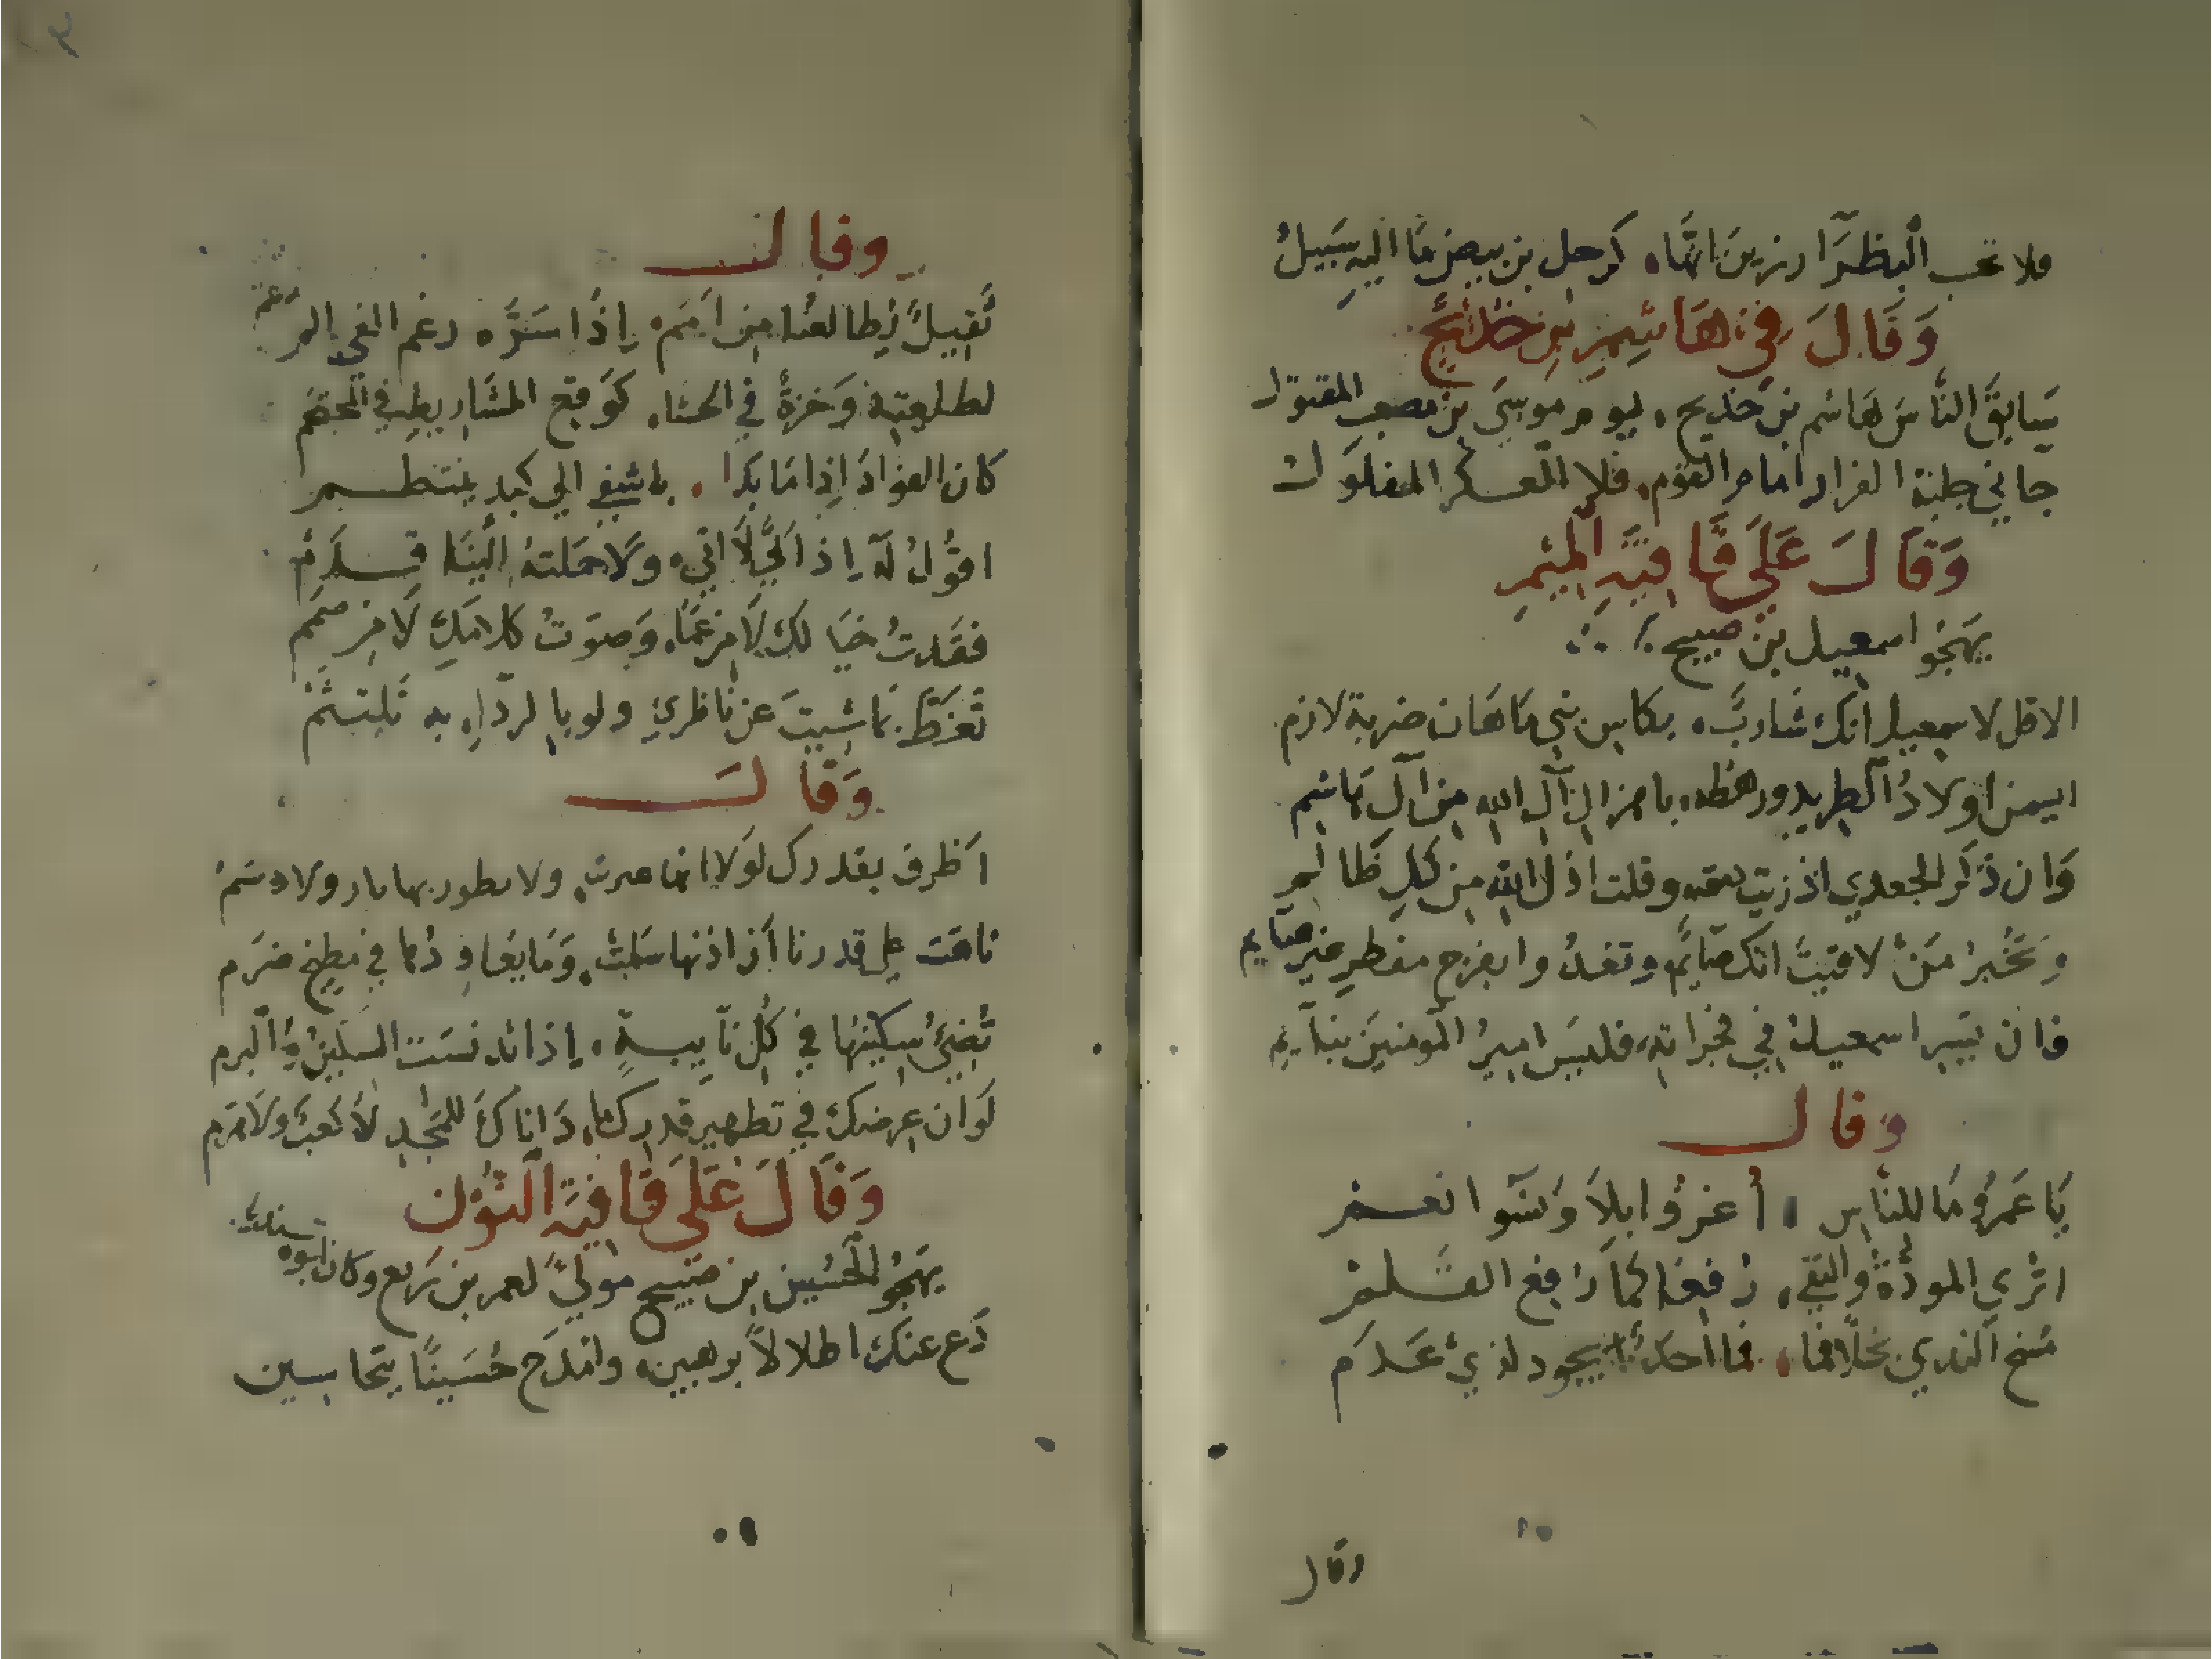 فلا تحب البظرا رزين انها كرحل بن بيض ما اليه سبيل
وَقَالَ في هَاشِمِ بنِ خديج
سَابقَ النَّاسَ هَاشم بن خَديج يوم موسَى بن مصعب المقتول
جاني حلبة الفرار امام القوم فلا العسكر المفلول
وَقَالَ عَلَى قَافيَةِ المِيْمِ
يَهجُو اسمعيل بن صبيح
الا قل لاسمعيل انك شاربٌ بكاس بني مَاهَان ضربة لازم
ايسمن اولادُ الطريد ورهطه باهزال آل الله من آل هاشم
وَان ذكر الجعدي اذريت دمعه وقلت اذل الله من كل ظالم
وتخبر مَنْ لاقيتَ انك صَايم وتغدُ وا بفرج مفطر غير صايم
فان يسر اسمعيل في فجراته فليس اميرُ المومنين بنايم
وقال
يَا عَمرُو مَا للناس أغروا بلا وَنسَوا نعم
اثري المودةُ والتقى رفعا كما رفع السلم
مُسخ الندي بخلا فما احدٌ يجود لذي عَدَم
وقال
وقال
ثَقيلٌ يُطالعنا من اَمَم اِذَا سَرَّه رغم انفي الم
لطلعته وَخزةٌ في الحشا كوَقع المشَارِيط في المحتجم
كان الفوادَ اِذا مَا بَدا باشفى الي كبد ينتظم
اقوُلُ لَهُ اِذ اَتَي لاَ اَتي ولا حملته الينَا قدم
فقَدتُ خيَالك لاَ من عَمَا وَصوَتُ كلامك لا من صمَم
تغطّ بمَا شيتَ عن ناظري ولو بالردَاء به تلتثم
وَقَالَ
اَظرف بقدرك لولا انها عبرت ولا يطور بها نار ولا دسم
ناهت علي قدرنا اَن اذنها سَلمت وَمَا يغادِ دُها في مطبخ ضرم
تُضيُ سكينُها في كُل نَايبةٍ اِذا تدنسَت السكينُ والبرم
لَوَان عرضك في تطهير قدركما دَاناكَ للمَجد لا كعبٌ ولا هَرم
وَقَالَ عَلى قَافيَة النُّوْن
يهجُو الحُسَين بن صبيح مولي لعمر بن ربع وكان ابوه
دَع عنك اطلالاً برهبين وامدَح حُسَينًا بتحاسين